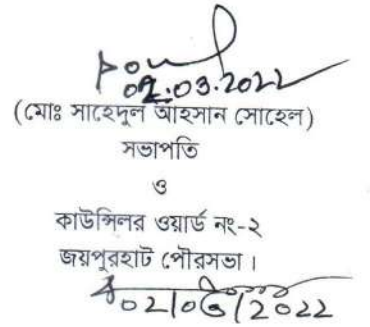 02.03.2022
(মোঃ সাহেদুল আহসান সোহেল)
সভাপতি
ও
কাউন্সিলর ওয়ার্ড নং-২
জয়পুরহাট পৌরসভা।
02/03/2022